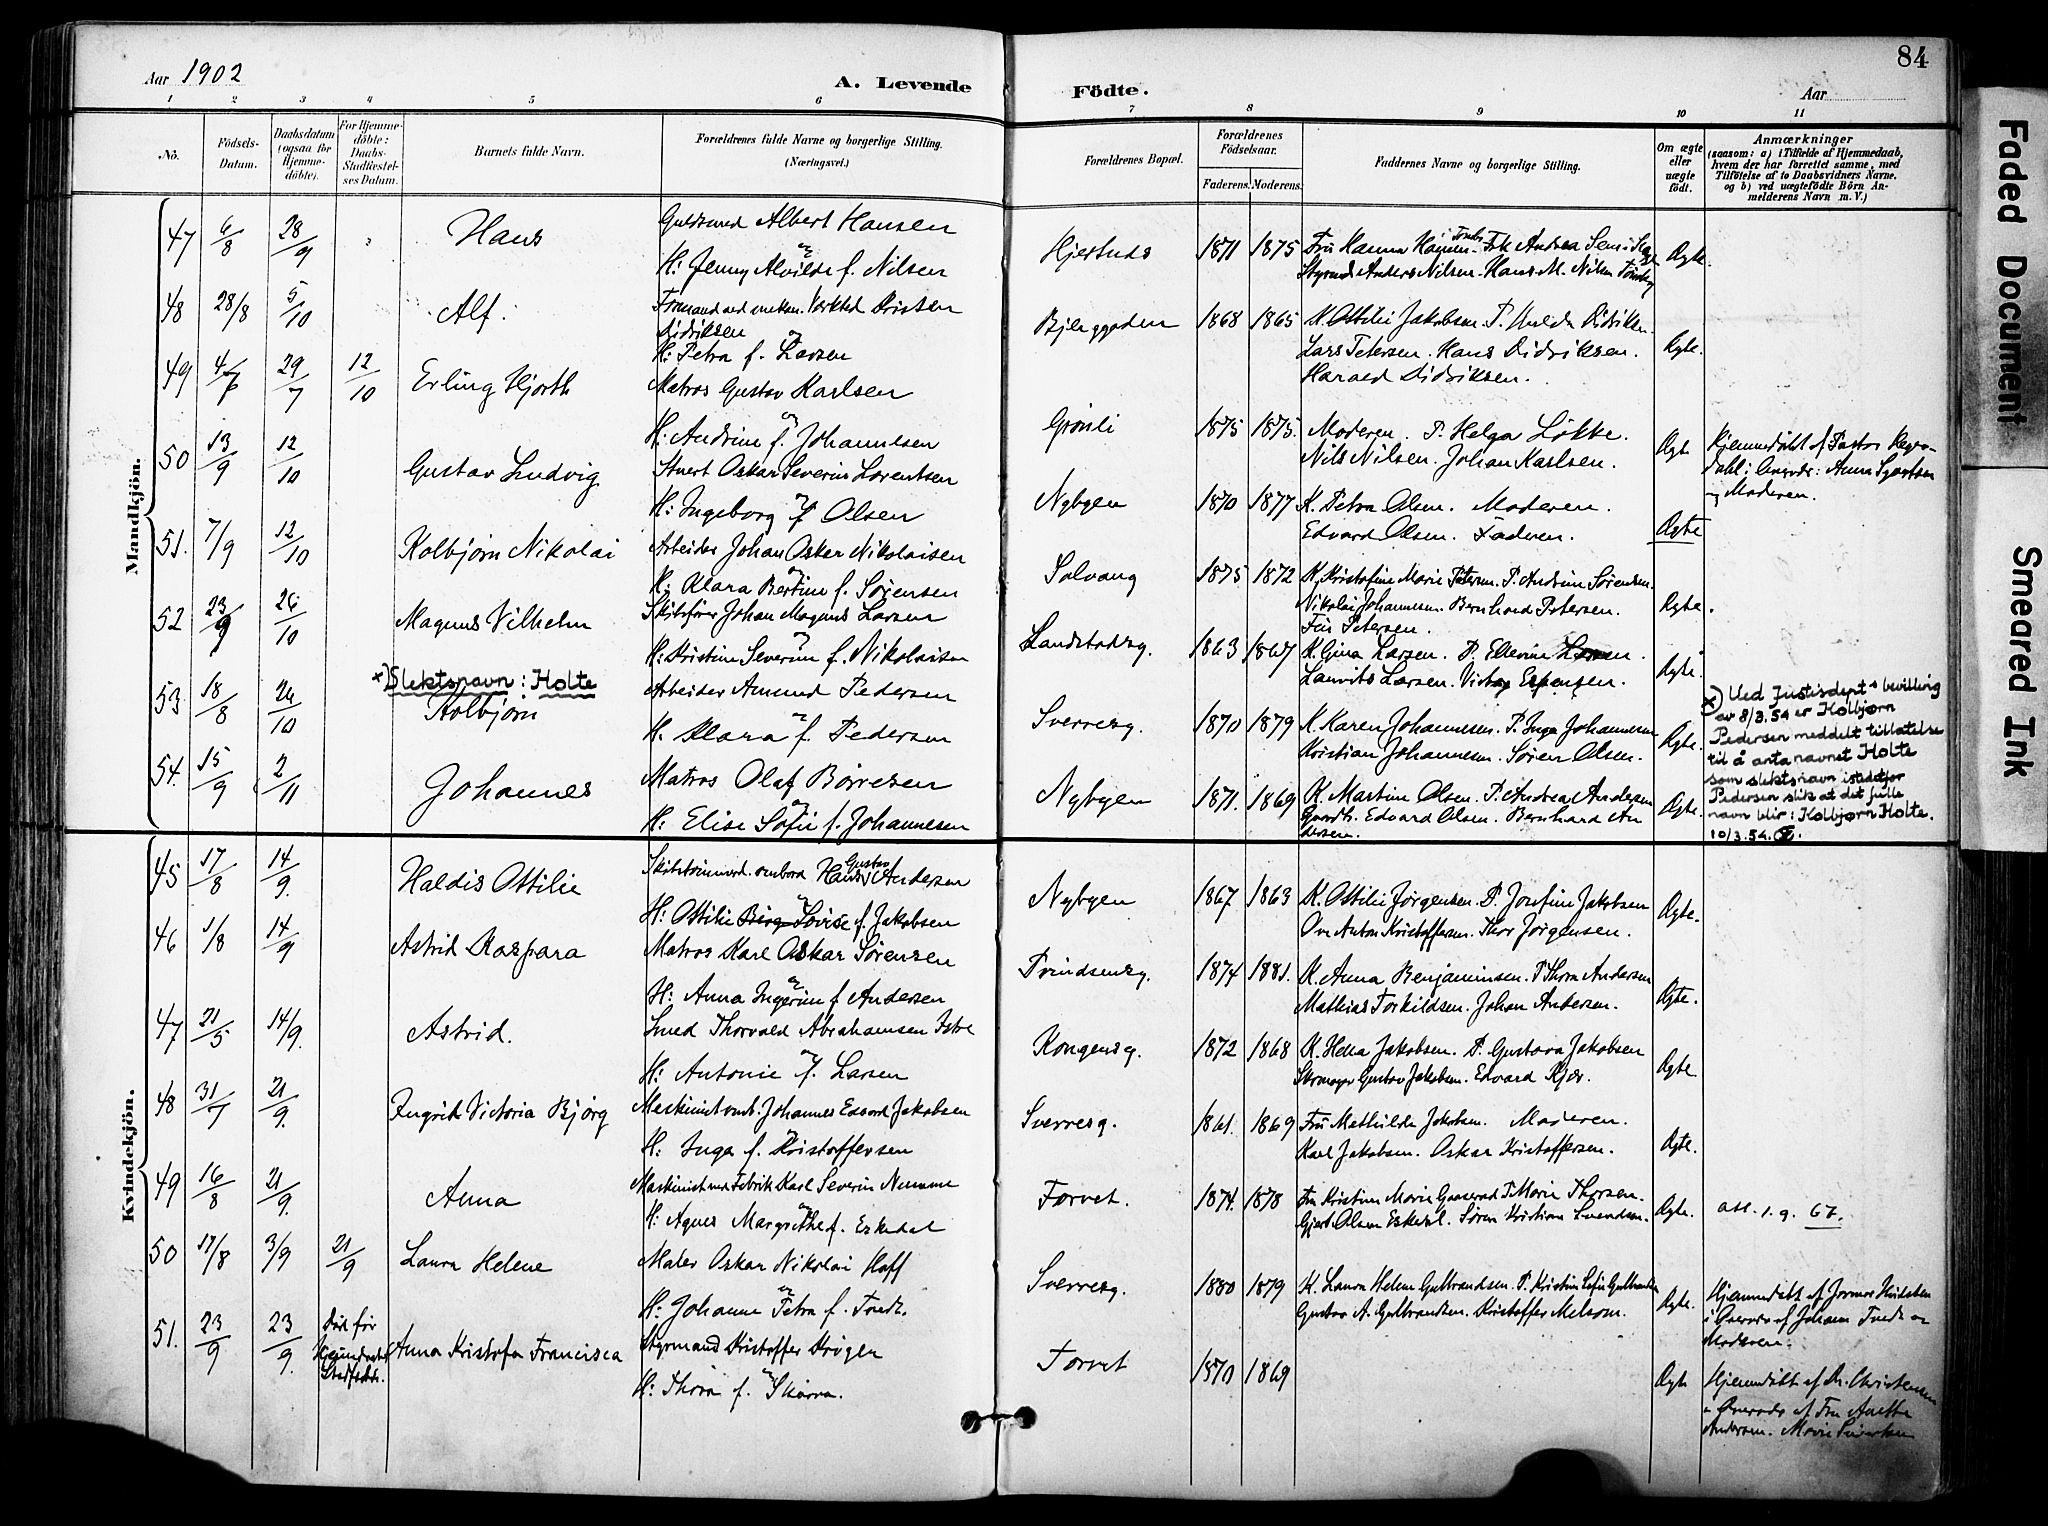 Aar 1902
A. Levende
Födte.
Aar
84
1 2 3 4 5 6 7 8 9 10 11
No.
Födsels-Datum.
Daabsdatum (ogsaa for Hjemmedöbte).
For Hjemmedöbte: Daabs-Stadfæstelses Datum.
Barnets fulde Navn.
Forældrenes fulde Navne og borgerlige Stilling. (Næringsvei.)
Forældrenes Bopæl.
Forældrenes Födselsaar.
Faderens. Moderens.
Faddernes Navne og borgerlige Stilling.
Om ægte eller uægte födt.
Anmærkninger
(saasom: a) i Tilfælde af Hjemmedaab, hvem der har forrettet samme, med Tilföielse af to Daabsvidners Navne. og b) ved uægtefödte Börn Anmelderens Navn m. V.)
Mandkjön.
47 6/8 28/9 Hans
Guldsmed Albert Hansen
H: Jenny Alvilde f. Nilsen
1871 1875
Ægte.
48 28/8 5/10 Alf.
Didriksen
H: Petra f. Larsen
1868 1865 K. Ottilie Jakobsen. P. Hulda Didriksen.
Lars Petersen. Hans Didriksen.
Harald Didriksen.
Ægte.
49 29/7 12/10 Erling Hjorth
Matros Gustav Karlsen
H: Andrine f. Johannesen
Grønli 1875 1875. Moderen. P. Helga Løkke.
Nils Nilsen. Johan Karlsen.
Ægte
og Moderen.
50 13/9 12/10 Gustav Ludvig
Stuert Oskar Severin Lorentsen
H: Ingeborg f. Olsen
Nybyen 1870 1877 K. Petra Olsen. Moderen.
Edvard Olsen. Faderen.
Ægte
51. 7/9 12/10 Kolbjørn Nikolai
Arbeider Johan Oskar Nikolaisen
H: Klara Bertine f. Sørensen
Solvang 1875 1872 K. Kristofine Marie Petersen. P. Andrine Sørensen.
Nikolai Johannesen. Bernhard Petersen.
Ægte.
52 23/9 26/10 Magnus Vilhelm
Skibsfører Johan Magnus Larsen
H: Kristine Severine f. Nikolaisen
Landstadsg. 1863 1867 K. Gina Larsen. P. Ellevine Larsen.
Laurits Larsen. Victor Espensen.
Ægte.
53. 18/8 26/10 x) Slektsnavn: Holte
Kolbjørn
Arbeider Amund Pedersen
H. Klara f. Pedersen
Sverresg. 1870 1879 K. Karen Johannesen. P. Inga Johannesen
Kristian Johannesen. Søren Olsen.
Ægte.
x) Ved Justisdept.s bevilling
av 8/3.54 er Kolbjørn
Pedersen meddelt tillatelse
til å anta navnet Holte
som slektsnavn istedetfor
Pedersen slik at det fulle
navn blir: Kolbjørn Holte.
10/3.54.
54. 15/9 2/11 Johannes
Matros Olaf Børresen
H: Elise Sofie f. Johannesen
Nybyen 1871. 1869 K. Martine Olsen. P. Andrea Andersen
Edvard Olsen. Bernhard Andersen.
Ægte.
Kvindekjön.
45 17/8 14/9. Haldis Ottilie
Hans Gustav Andersen
H: Ottilie Lovise f. Jakobsen
Nybyen 1867 1863 K. Ottilie Jørgensen. P. Josefine Jakobsen
Ove Anton Kristoffersen. Thor Jørgensen.
Ægte.
46 1/8 14/9 Astrid Kaspara
Matros Karl Oskar Sørensen
H: Anna Ingerine f. Andersen
Trindsensg. 1874 1881. K. Anna Benjaminsen. P. Thora Andersen
Mathias Torkildsen. Johan Andersen.
Ægte.
47 21/5 14/9. Astrid.
Smed Thorvald Abrahamsen
H: Antonie f. Larsen
Kongensg. 1872 1868 K. Helia Jakobsen. P. Gustava Jakobsen
Skomager Gustav Jakobsen. Edvard Kjær.
Ægte
48 31/7 21/9. Ingrid Victoria Bjørg
Maskinist Johannes Edvard Jakobsen
H: Inga f. Kristoffersen
Sverresg. 1861. 1869 Fru Mathilde Jakobsen. Moderen.
Karl Jakobsen. Oskar Kristoffersen.
Ægte.
49 16/8 21/9. Anna
Karl Severin
H: Agnes Margrethe f. Eskedal
Torvet. 1874. 1878 P. Marie Thorsen.
Gjert Olsen Eskedal. Søren Kristian Svendsen.
Ægte. 1.9.67.
50 17/8 3/9 21/9 Laura Helene
Maler Oskar Nikolai Hoff
H: Johanne Petra f. Tvedt.
Sverresg. 1880 1879 K. Laura Helene Gulbrandsen. P. Kristine Sofie Gulbrandsen
Gustav A. Gulbrandsen. Kristoffer Melsom.
Ægte.
Moderen.
51. 23/9 23/9. Død før
Anna Kristofa Francisca
Styrmand Kristoffer Krøger
H: Thora f. Skarra.
Torvet 1870 1869
Ægte
Hjemmedøbt af Dr. Christensen
Faded Document
Smeared Ink